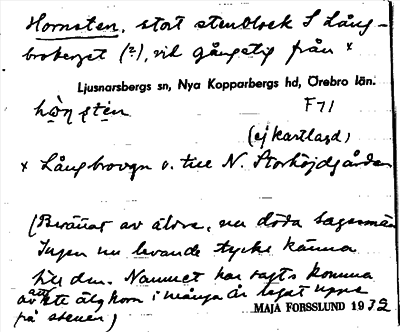 Hornsten, stort stenblock S Lång-
broberget (?), vid gångstig från x
Ljusnarsbergs sn, Nya Kopparbergs hd, Örebro län.
hòṇsten F71
(ej kartlagd)
x Långbrovgn o. till N. Storhöjdgården
(Berättat av äldre, nu döda sagesmän
Ingen nu levande tycks känna
till den. Namnet har sagts komma
av att ett älghorn i många år legat uppe
på stenen)
MAJA FORSSLUND 1932